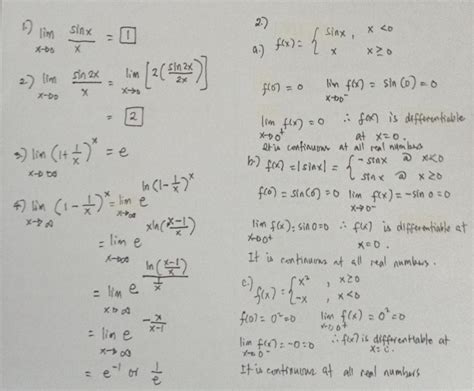 1.) lim x→0 sinx/x = 1
2.) lim x→0 sin2x/x = lim x→0 [2(sin2x/2x)]
= 2
3.) lim x→∞ (1+1/x)^x = e
4.) lim x→∞ (1-1/x)^x = lim x→∞ e^ln(1-1/x)^x
= lim x→∞ e^xln(x-1/x)
= lim x→∞ e^ln(x-1/x)/(1/x)
= lim x→∞ e^-x/(x-1)
= e^-1 or 1/e
2.)
a.) f(x) = { sinx, x<0
x x≥0
f(0)=0 lim x→0^- f(x) = sin(0)=0
lim x→0^+ f(x)=0 ∴ f(x) is differentiable
at x=0.
It is continuous at all real numbers
b.) f(x)=|sinx|= { -sinx @ x<0
sinx @ x≥0
f(0)=sin(0)=0 lim x→0^- f(x)=-sin0=0
lim x→0^+ f(x)=sin0=0 ∴ f(x) is differentiable at
x=0.
It is continuous at all real numbers.
c.) f(x)= { x², x≥0
-x, x<0
f(0)=0²=0 lim x→0^+ f(x)=0²=0
lim x→0^- f(x)=-0=0 ∴ f(x) is differentiable at
x=0.
It is continuous at all real numbers